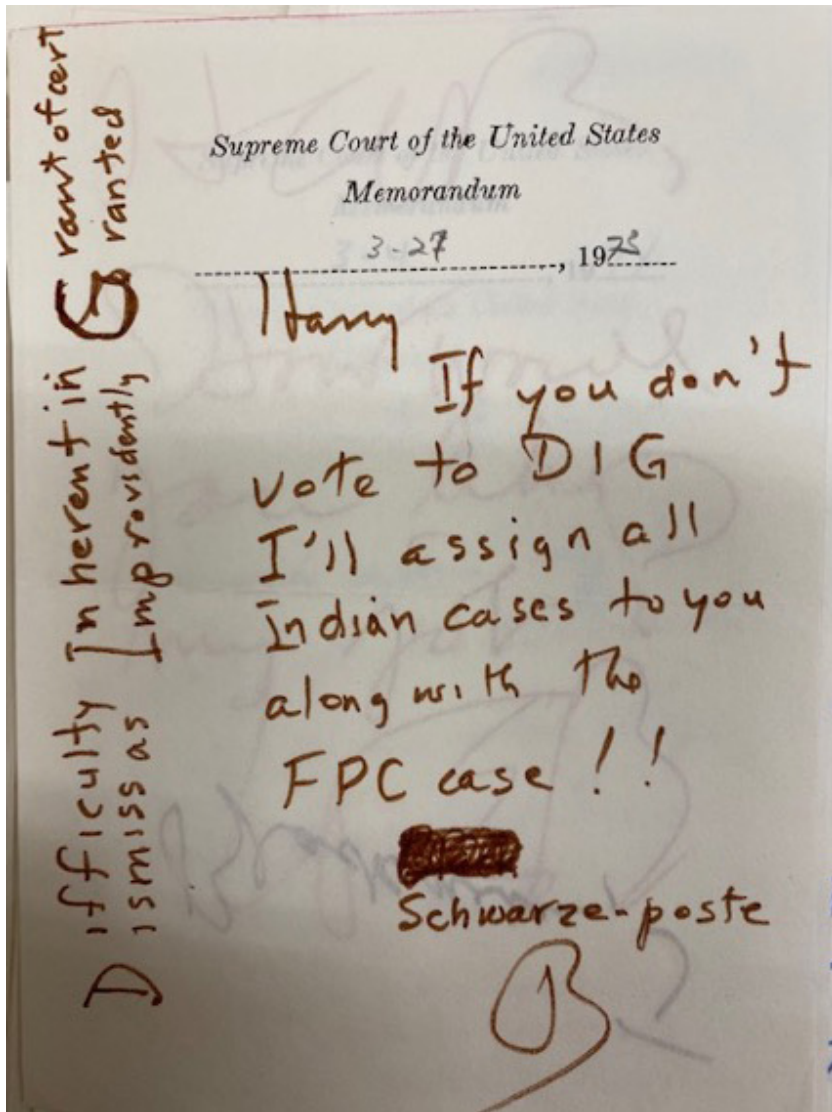 Supreme Court of the United States
Memorandum
3-27, 1973
Harry
If you don't
vote to DIG
I'll assign all
Indian cases to you
along with the
FPC case!!
Schwarze-poste
B
Difficulty Inherent in Grant of cert
Dismiss as Improvidently Granted